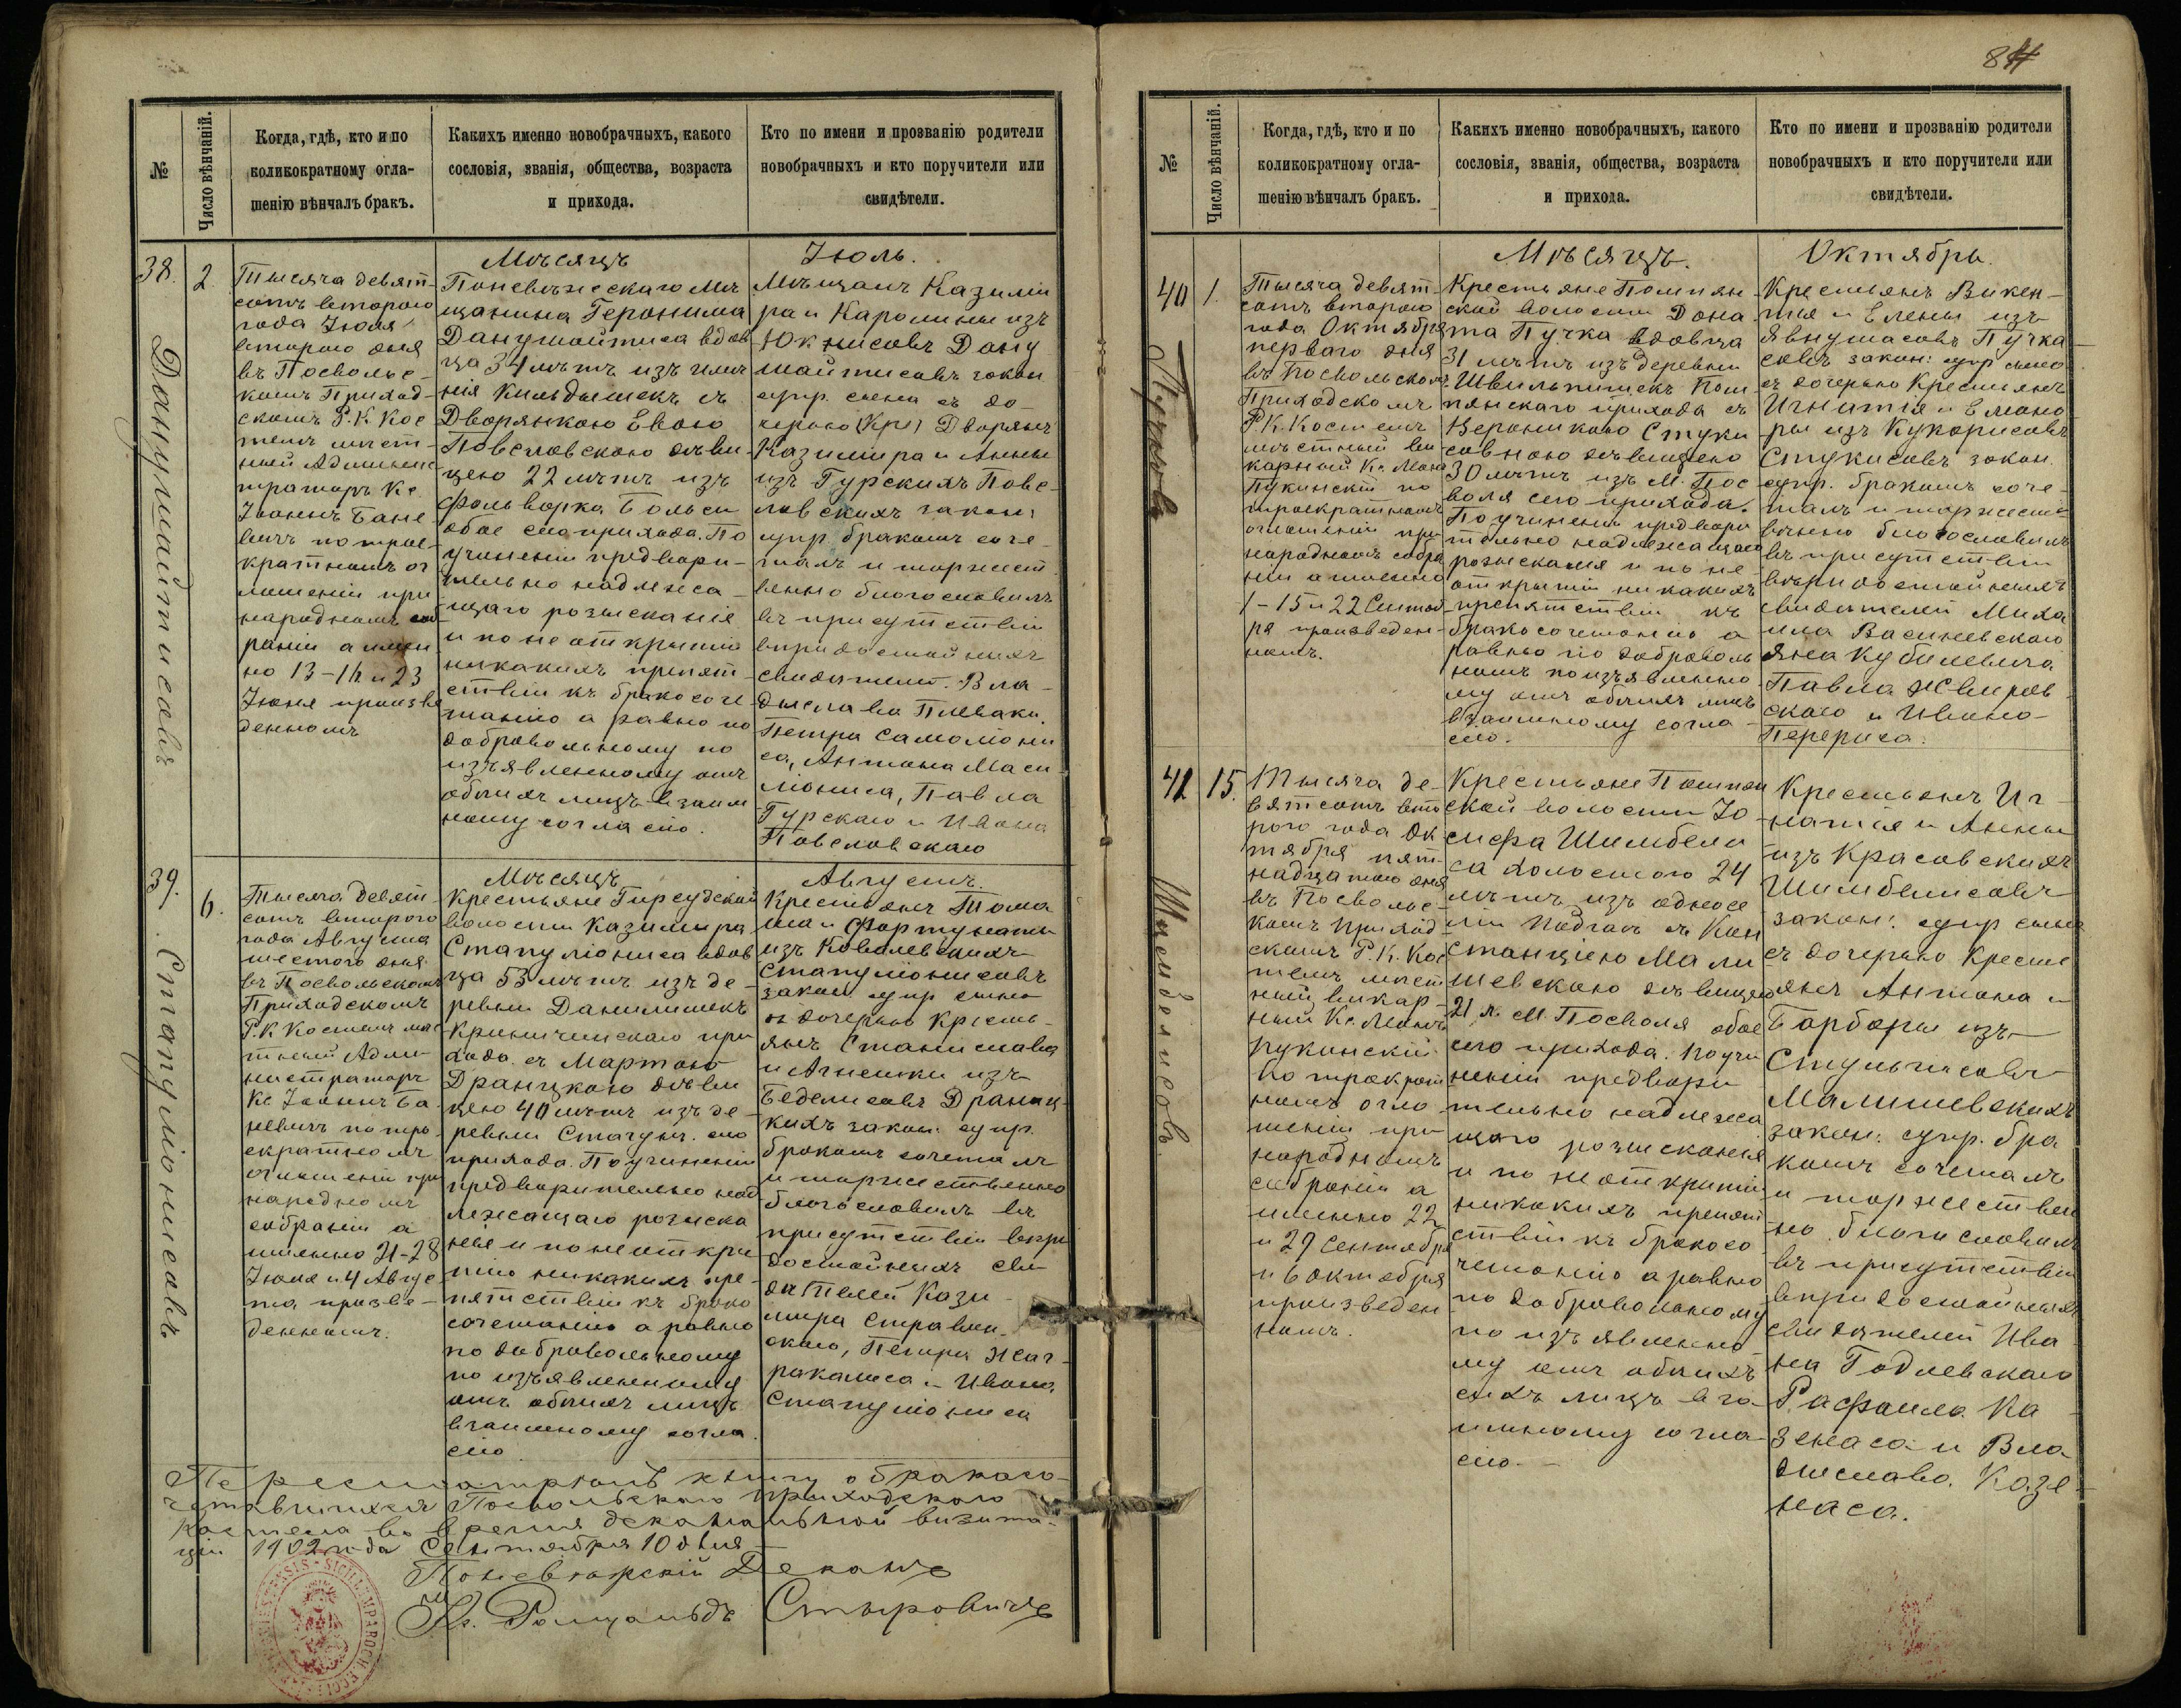 84
№
Число вѣнчаній.
Когда, гдѣ, кто и по
коликократному огла-
шенію вѣнчалъ бракъ.
Какихъ именно новобрачныхъ, какого
сословія, званія, общества, возраста
и прихода.
Кто по имени и прозванію родители
новобрачныхъ и кто поручители или
свидѣтели.
Мѣсяцъ
Іюль.
38.
2.
Данушайтисовъ
Тысяча девят-
сотъ второго
года Іюля
второго дня
въ Посволь-
комъ Приход-
скомъ Р. К. Кос
телѣ мѣст-
ный Админис
траторъ Кс.
Іоаннъ Бане
вичъ по трое-
кратномъ ог
лашеніи при
народномъ соб
раніи а имен
но 13-16 и 23
Іюня произве
денномъ
Поневѣжскаго Мѣ
щанина Геронима
Данушайтиса вдов
ца 34 лѣтъ изъ имѣ
нія Кильдышекъ съ
Дворянкою Евою
Повсловскою дѣви
цею 22 лѣтъ изъ
фольварка Больси
обое сего прихода. По
учиненіи предвари-
тельно надлежа-
щаго розысканія
и по не открытіи
никакихъ препят-
ствій къ бракосоче
танію а равно по
добровольному по
изъявленному отъ
обѣихъ лицъ взаим
ному согласію.
Мѣщанъ Казимі
ра и Каролины изъ
Юкнисовъ Дану
шайтисовъ закон
супр. сына съ до-
черью (Кре) Дворянъ
Казимира и Анны
изъ Гурскихъ Повс-
ловскихъ закон:
супр. бракомъ соче-
талъ и торжест
венно благословилъ
въ присутствіи
вѣридостойныхъ
свидѣтелей. Вла-
дыслава Плеваки.
Петра Самоліони
са, Антона Маси
ліониса, Павла
Гурскаго и Ивана
Повсловскаго
Мѣсяцъ
Августъ.
39.
6.
Стапуліонисовъ
Тысяча девят
сотъ второго
года Августа
шестого дня
въ Посвольскомъ
Приходскомъ
Р. К Костелѣ мѣс
тный Адми-
нистраторъ
Кс Іоаннъ Ба
невичъ по трое
кратномъ
оглашеніи при
народномъ
собраніи а
именно 21-28
Іюля и 4 Авгус
та произве-
денномъ.
Крестьяне Гирсудской
волости Казимира
Стапуліониса вдов
ца 53 лѣтъ изъ де-
ревни Данилишекъ
Криничинскаго при
хода съ Мартою
Дранцкою дѣви
цею 40 лѣтъ изъ де-
ревни Стачунъ. сего
прихода. По учиненіи
предварительно над
лежащаго розыска
нія и по не откры
тію никакихъ пре-
пятствій къ брако
сочетанію а равно
по добровольному
по изъявленному
отъ обѣихъ лицъ
взаимному согла
сію
Крестьянъ Тома
ша и Фортунаты
изъ Ковалевскихъ
Стапуліонисовъ
закон. супр сына
съ дочерью Кресть-
янъ Станислава
и Агнешки изъ
Беделисовъ Дранц-
кихъ закон: супр.
бракомъ сочеталъ
и торжественно
благословилъ въ
присутствіи вѣри
достойныхъ сви
дѣтелей Кази-
мира Стравин-
скаго, Петра Жаг-
ракалиса и Ивана
Стапуліониса
Пересматрювъ книгу о бракосо-
четавшихся Посвольскаго приходского
костела во время деканальной визита-
ціи 1902 года Сентября 10 дня
Поневѣжскій Деканъ
Кс. Ромуальдъ Стыровичъ
№
Число вѣнчаній.
Когда, гдѣ, кто и по
коликократному огла-
шенію вѣнчалъ бракъ.
Какихъ именно новобрачныхъ, какого
сословія, званія, общества, возраста
и прихода.
Кто по имени и прозванію родители
новобрачныхъ и кто поручители или
свидѣтели.
Мѣсяцъ.
Октябрь.
40
1.
Пучковъ
Тысяча девят-
сотъ второго
года Октября
перваго дня
въ Посвольскомъ
Приходскомъ
Р К. Костелѣ
мѣстный ви
карный Кс. Манъ
Пукинскій по
троекратномъ
оглашеніи при
народномъ собра
ніи а именно
1-15 и 22 Сентяб
ря произведен-
номъ.
Крестьяне Помпян
ской волости Дона
та Пучка вдовца
31 лѣтъ изъ деревни
Швильпишекъ Пом
пянскаго прихода съ
Вероникою Стуки
совною дѣвицею
30 лѣтъ изъ М. Пос
воля сего прихода.
По учиненіи предвари
тельно надлежащаго
розысканія и по не
открытіи никакихъ
препятствій къ
бракосочетанію а
равно по доброволь
номъ по изъявленно
му отъ обѣихъ лицъ
взаимному согла-
сію.
Крестьянъ Викен-
тія и Елены изъ
Явнушасовъ Пучка
совъ закон: супр сына
съ дочерью Крестьянъ
Игнатія и Елено
ры изъ Кукорисовъ
Стукисовъ закон.
супр. бракомъ соче-
талъ и торжест-
венно благословилъ
въ присутствіи
вѣридостойныхъ
свидѣтелей Миха
ила Васиневскаго
Яна Кубилевича
Павла Жвиров
скаго и Ивана
Переписа.
41
15.
Шимбелисовъ.
Тысяча де-
вятсотъ вто
рого года Ок
тября пят-
надцатого дня
въ Посволь-
комъ Приход
скомъ Р. К. Кос
телѣ мѣст
ный викар-
ный Кс. Манъ
Пукинскій
по трократ
номъ огла-
шеніи при
народномъ
собраніи а
именно 22
и 29 Сентября
и 6 Октября
произведен
номъ.
Крестьяне Помпян
ской волости Іо-
сифа Шимбели
са холостого 24
лѣтъ изъ односе
ли Подгай съ Кон
станціею Мали
шевскою дѣвицею
21 л. М. Посволя обое
сего прихода. По учи
неніи предвари
тельно надлежа
щаго розысканія
и по не открытіи
никакихъ препят
ствій къ бракосо
четанію а равно
по добровольному
по изъявленно
му отъ обѣихъ
сихъ лицъ вза-
имному согла-
сію.-
Крестьянъ Иг-
натія и Анны
изъ Красовскихъ
Шимбелисовъ
закон: супр сына
съ дочерью Кресть
янъ Антона и
Барбары изъ
Стульгисовъ
Малишевскихъ
закон: супр. бра
комъ сочеталъ
и торжествен
но благословилъ
въ присутствіи
вѣридостойныхъ
свидѣтелей Ива
на Годлевскаго
Рафаила Ка
зенаса и Вла
дислава. Казе-
наса.